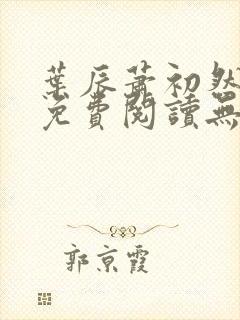 葉辰蕭初然
免費閱讀無
郭京霞